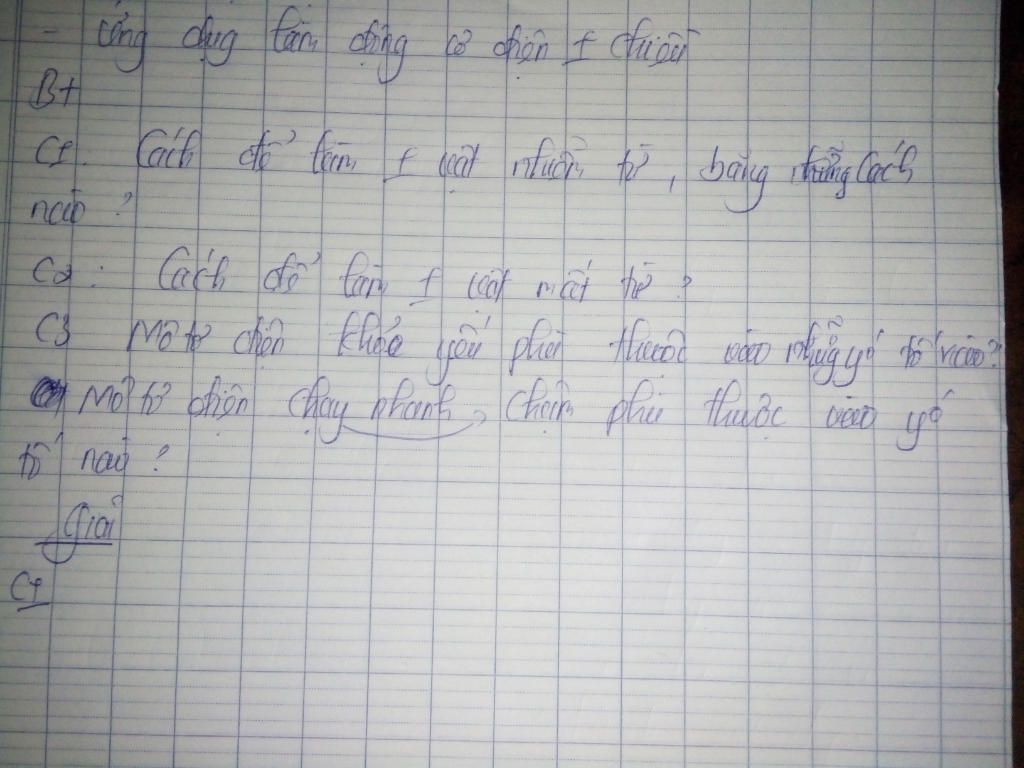 - ứng dụg làm động cơ điện 1 chiều
Bt
C1. Cách để làm 1 vật nhiễm từ, bằng những cách
nào?
C2: Cách để làm 1 vật mất từ?
C3 Mô tơ điện khỏe yếu phụ thuộc vào nhữg yố tố nào?
Mô tơ điện chạy nhanh, chậm phụ thuộc vào yố
tố nào?
Giải
C1